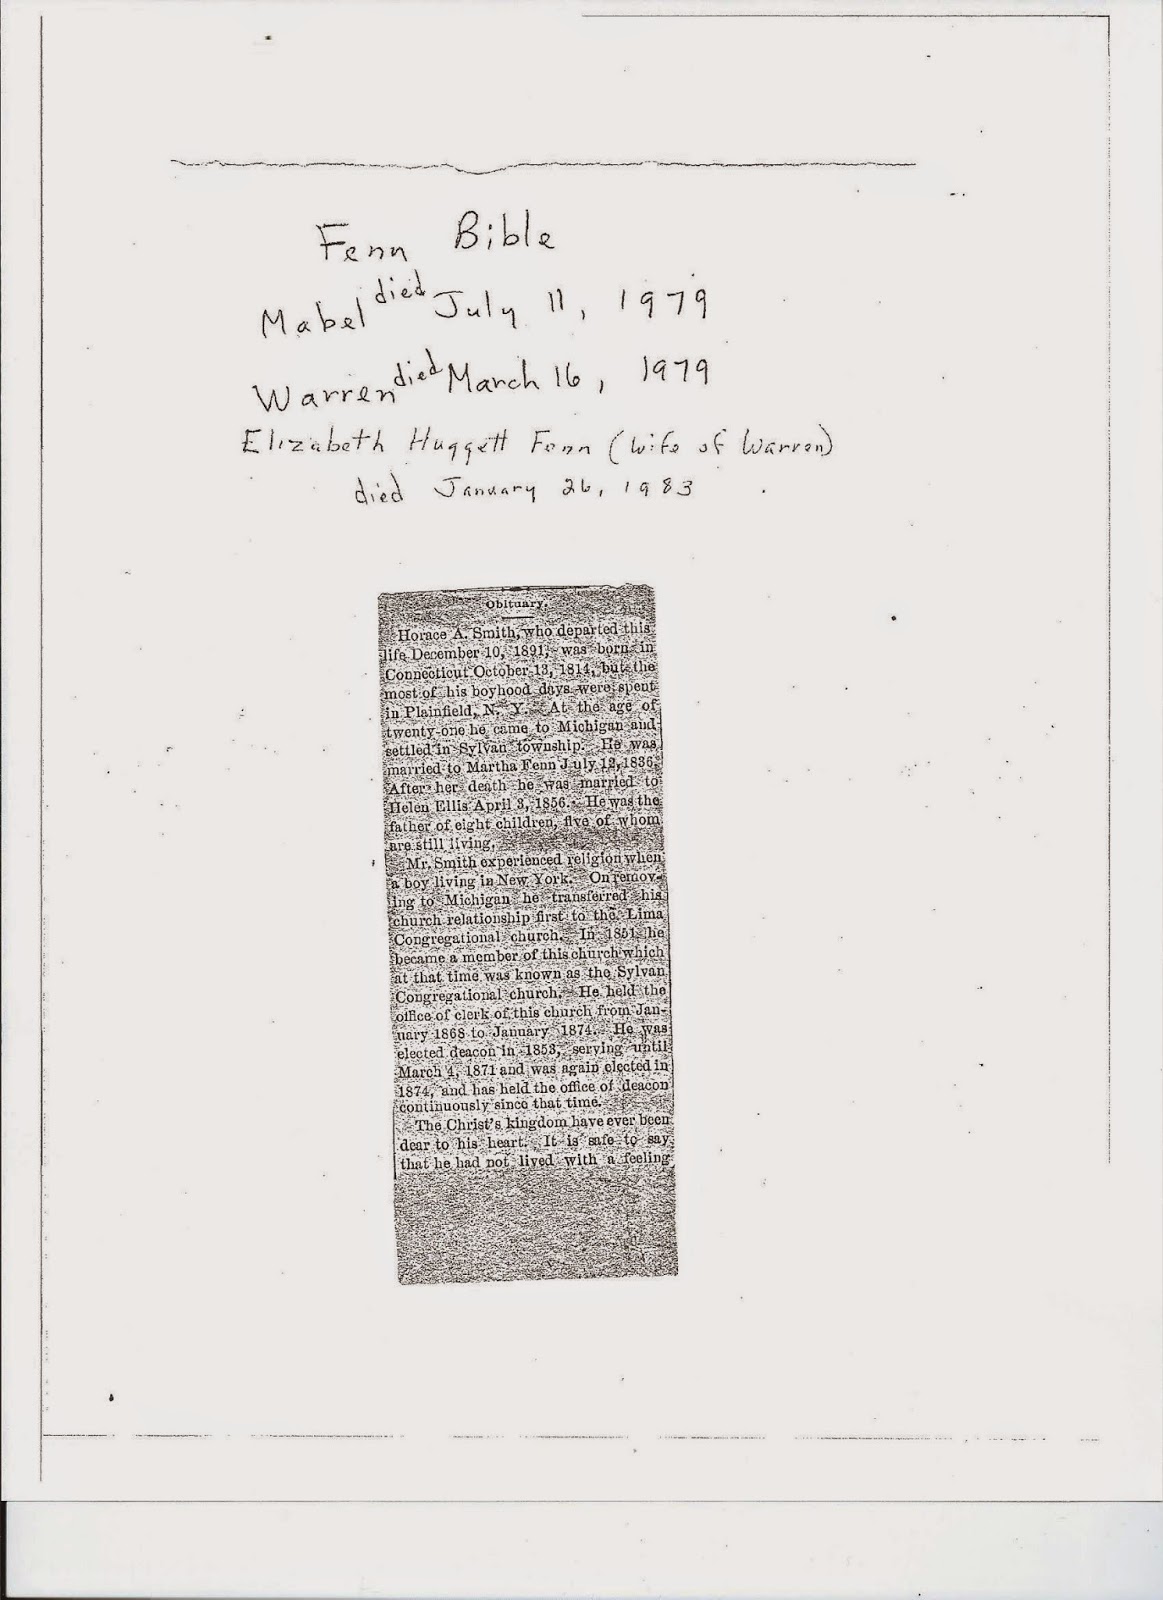 Fenn Bible
Mabel died July 11, 1979
Warren died March 16, 1979
Elizabeth Huggett Fenn (wife of Warren)
died January 26, 1983
Obituary.
Horace A. Smith, who departed this
life December 10, 1891, was born in
Connecticut October 13, 1814, but the
most of his boyhood days were spent
in Plainfield, N. Y. At the age of
twenty-one he came to Michigan and
settled in Sylvan township. He was
married to Martha Fenn July 12, 1836.
After her death he was married to
Helen Ellis April 3, 1856. He was the
father of eight children, five of whom
are still living.
Mr. Smith experienced religion when
a boy living in New York. On remov-
ing to Michigan he transferred his
church relationship first to the Lima
Congregational church. In 1851 he
became a member of this church which
at that time was known as the Sylvan
Congregational church. He held the
office of clerk of this church from Jan-
uary 1868 to January 1874. He was
elected deacon in 1853, serving until
March 4, 1871 and was again elected in
1874, and has held the office of deacon
continuously since that time.
The Christ's kingdom have ever been
dear to his heart. It is safe to say
that he had not lived with a feeling